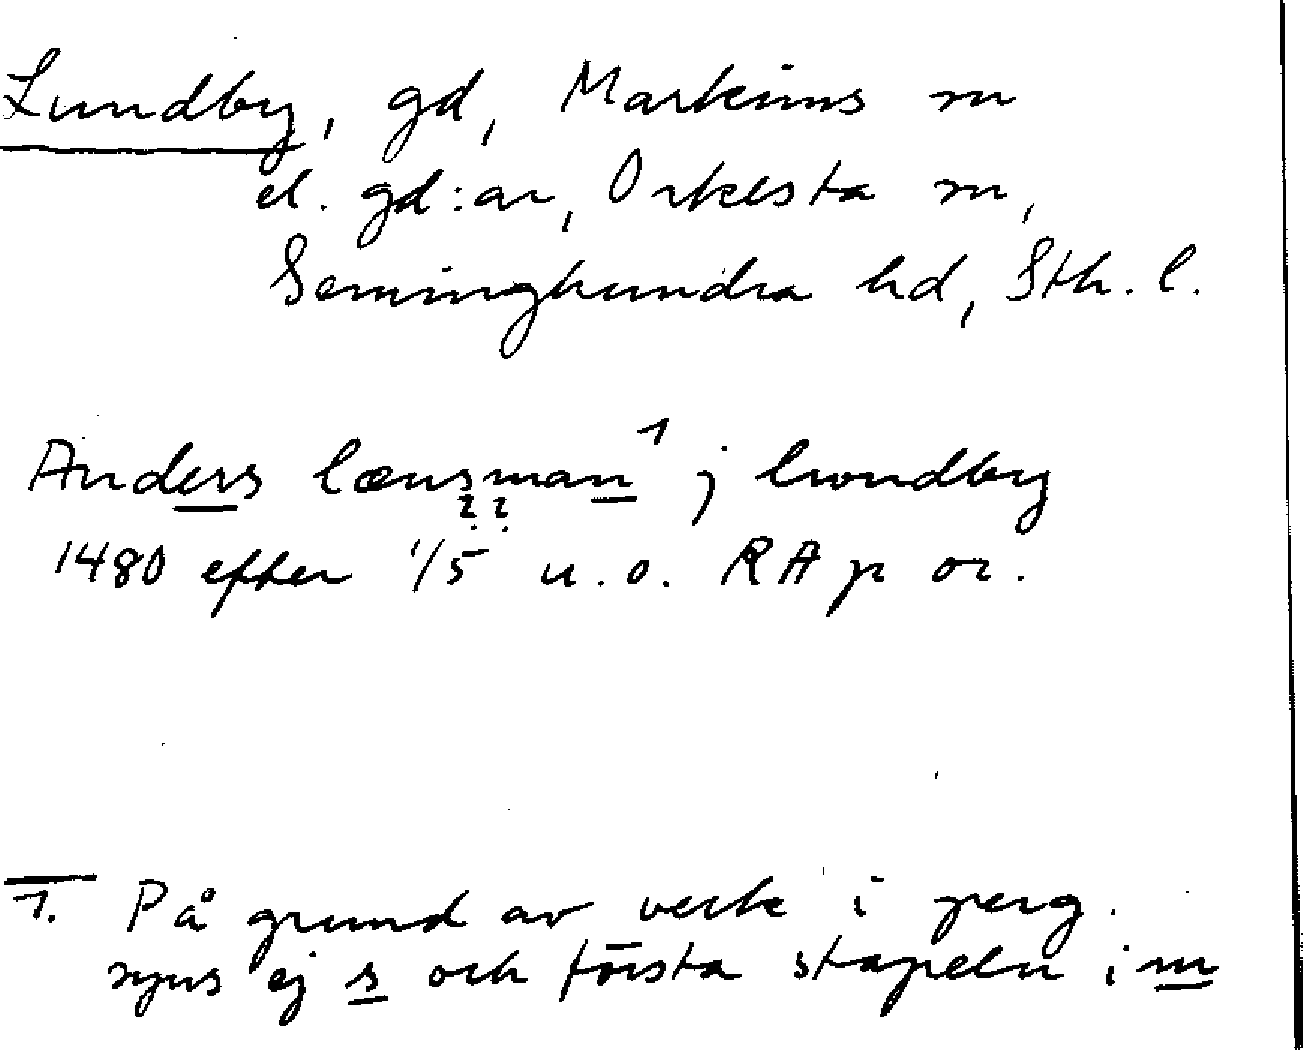 Lundby, gd, Markims sn
el. gd:ar, Orkesta sn,
Seminghundra hd, Sth. l.
Anders lænsman¹ j lwndby
? ?
1480 efter 1/5 u.o. RAp or.
1. På grund av veck i perg.
syns ej s och första stapeln i m